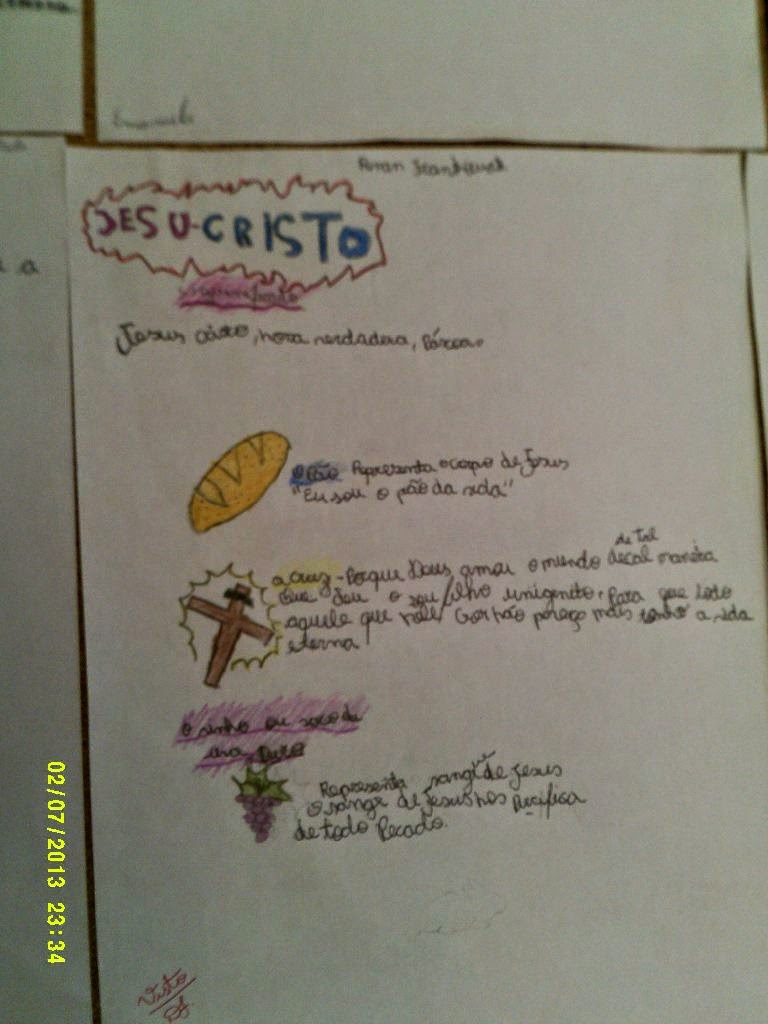 JESU-CRISTO
Jesus cristo, nova verdadera, Páscoa.
o Pão Representa o corpo de Jesus
"Eu sou o pão da vida"
de Tal
a cruz - Porque Deus amou o mundo decal maneira
que deu o seu filho unigenito, Para que todo
aquele que nele não pereço mais tenho a vida
eterna
o vinho ou suco da
uva puro
Representa sangue de Jesus
O sange de Jesus nos Purifica
de todo Pecado.
Visto
02/07/2013 23:34